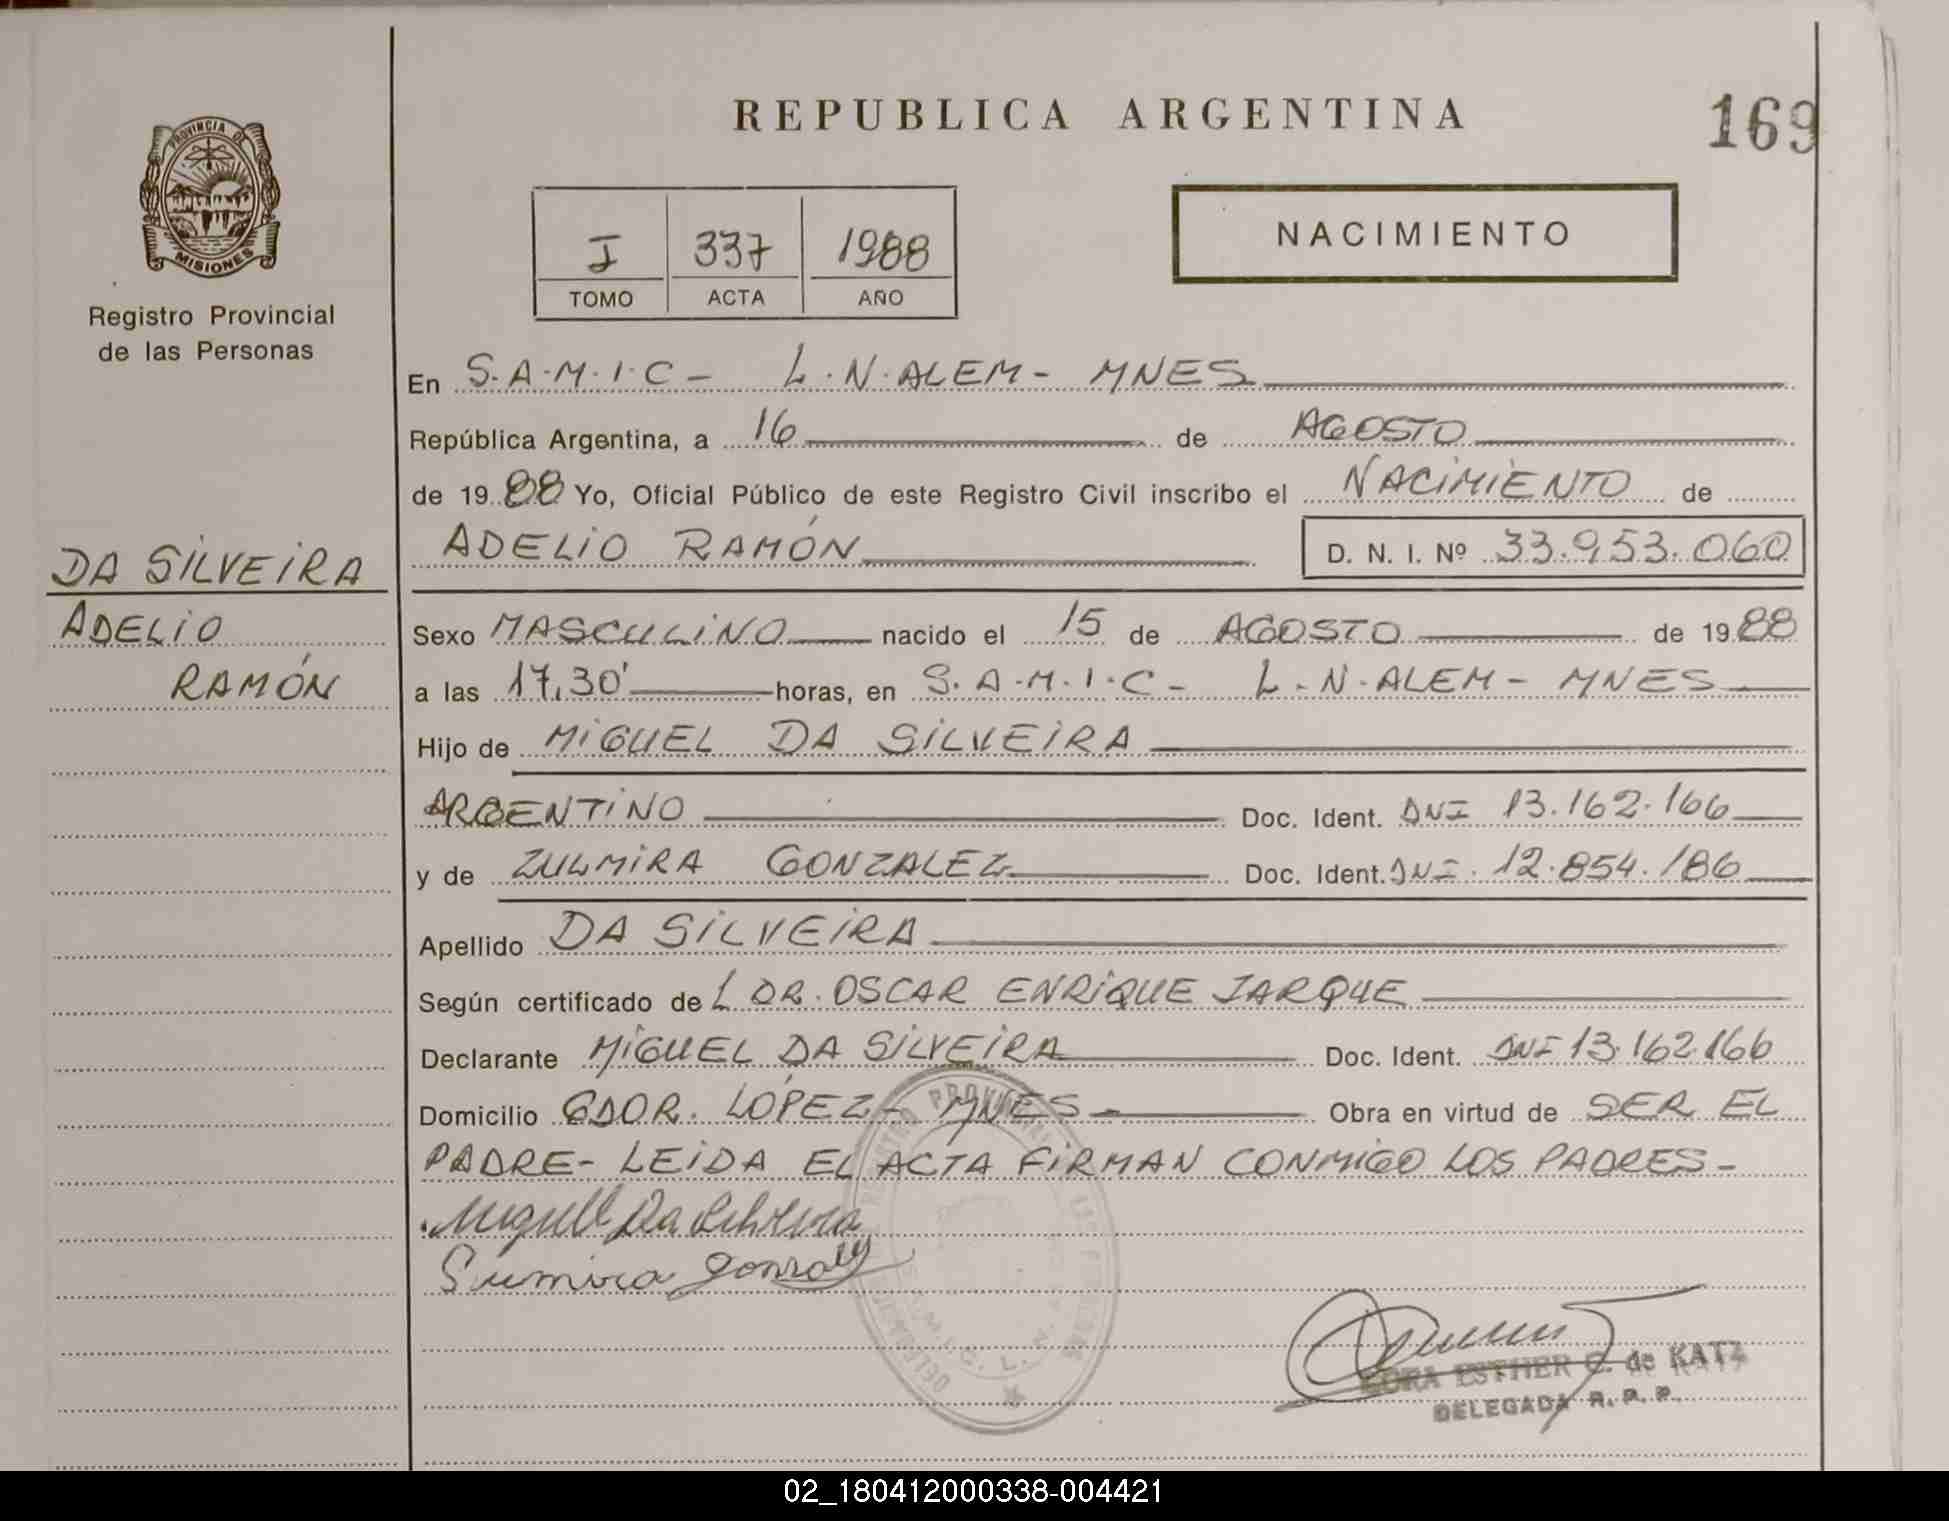 REPUBLICA ARGENTINA
169
PROVINCIA DE
MISIONES
Registro Provincial
de las Personas
I 337 1988
TOMO ACTA AÑO
NACIMIENTO
En S.A.M.I.C - L.N.ALEM - MNES
República Argentina, a 16 de AGOSTO
de 19 88 Yo, Oficial Público de este Registro Civil inscribo el NACIMIENTO de
ADELIO RAMÓN D. N. I. Nº 33.953.060
DA SILVEIRA
ADELIO
RAMÓN
Sexo MASCULINO nacido el 15 de AGOSTO de 19 88
a las 17,30' horas, en S.A.M.I.C - L.N.ALEM - MNES
Hijo de MIGUEL DA SILVEIRA
ARGENTINO Doc. Ident. DNI 13.162.166
y de ZULMIRA GONZALEZ Doc. Ident. DNI. 12.854.186
Apellido DA SILVEIRA
Según certificado de L DR. OSCAR ENRIQUE JARQUE
Declarante MIGUEL DA SILVEIRA Doc. Ident. DNI 13.162.166
Domicilio GDOR. LÓPEZ - MNES - Obra en virtud de SER EL
PADRE - LEIDA EL ACTA FIRMAN CONMIGO LOS PADRES -
Miguel Da Silveira
Sumira Gonzalez
ESTHER C. de KATZ
DELEGADA R. P. P.
02_180412000338-004421